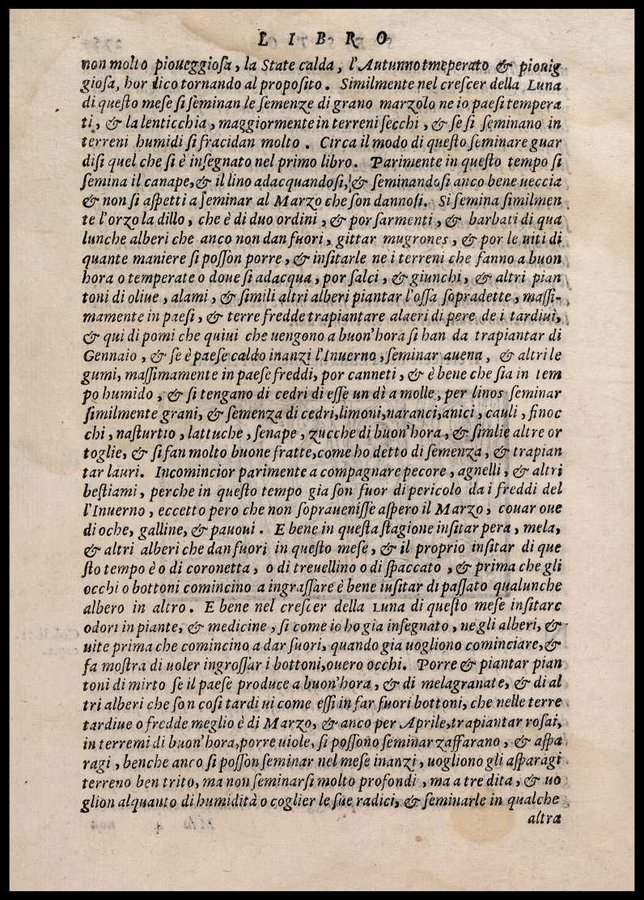 L I B R O
non molto pioueggiosa, la State calda, l'Autunno tmeperato & piouig
giosa, hor dico tornando al proposito. Similmente nel crescer della Luna
di questo mese si seminan le semenze di grano marzolo ne io paesi tempera
ti, & la lenticchia, maggiormente in terreni secchi, & se si seminano in
terreni humidi si fracidan molto. Circa il modo di questo seminare guar
disi quel che si è insegnato nel primo libro. Parimente in questo tempo si
semina il canape, & il lino adacquandosi, & seminandosi anco bene ueccia
& non si aspetti a seminar al Marzo che son dannosi. Si semina similmen
te l'orzo la dillo, che è di duo ordini, & por sarmenti, & barbati di qua
lunche alberi che anco non dan fuori, gittar mugrones, & por le uiti di
quante maniere si posson porre, & insitarle ne i terreni che fanno a buon
hora o temperate o doue si adacqua, por salci, & giunchi, & altri pian
toni di oliue, alami, & simili altri alberi piantar l'ossa sopradette, massi-
mamente in paesi, & terre fredde trapiantare alaeri di pere de i tardiui,
& qui di pomi che quiui che uengono a buon'hora si han da trapiantar di
Gennaio, & se è paese caldo inanzi l'Inuerno, seminar auena, & altri le
gumi, massimamente in paese freddi, por canneti, & è bene che sia in tem
po humido, & si tengano di cedri di esse un dì a molle, per linos seminar
similmente grani, & semenza di cedri, limoni, naranci, anici, cauli, finoc
chi, nasturtio, lattuche, senape, zucche di buon'hora, & simlie altre or
toglie, & si fan molto buone fratte, come ho detto di semenza, & trapian
tar lauri. Incomincior parimente a compagnare pecore, agnelli, & altri
bestiami, perche in questo tempo gia son fuor di pericolo da i freddi del
l'Inuerno, eccetto pero che non soprauenisse aspero il Marzo, couar oue
di oche, galline, & pauoui. E bene in questa stagione insitar pera, mela,
& altri alberi che dan fuori in questo mese, & il proprio insitar di que
sto tempo è o di coronetta, o di treuellino o di spaccato, & prima che gli
occhi o bottoni comincino a ingrassare è bene iusitar di passato qualunche
albero in altro. E bene nel crescer della Luna di questo mese insitare
odori in piante, & medicine, si come io ho gia insegnato, ne gli alberi, &
uite prima che comincino a dar fuori, quando gia uogliono cominciare, &
fa mostra di uoler ingrossar i bottoni, ouero occhi. Porre & piantar pian
toni di mirto se il paese produce a buon'hora, & di melagranate, & di al
tri alberi che son cosi tardi ui come essi in far fuori bottoni, che nelle terre
tardiue o fredde meglio è di Marzo, & anco per Aprile, trapiantar rosai,
in terremi di buon'hora, porre uiole, si possono seminar zaffarano, & aspa
ragi, benche anco si posson seminar nel mese inanzi, uogliono gli asparagi
terreno ben trito, ma non seminarsi molto profondi, ma a tre dita, & uo
glion alquanto di humidità o coglier le sue radici, & seminarle in qualche
altra